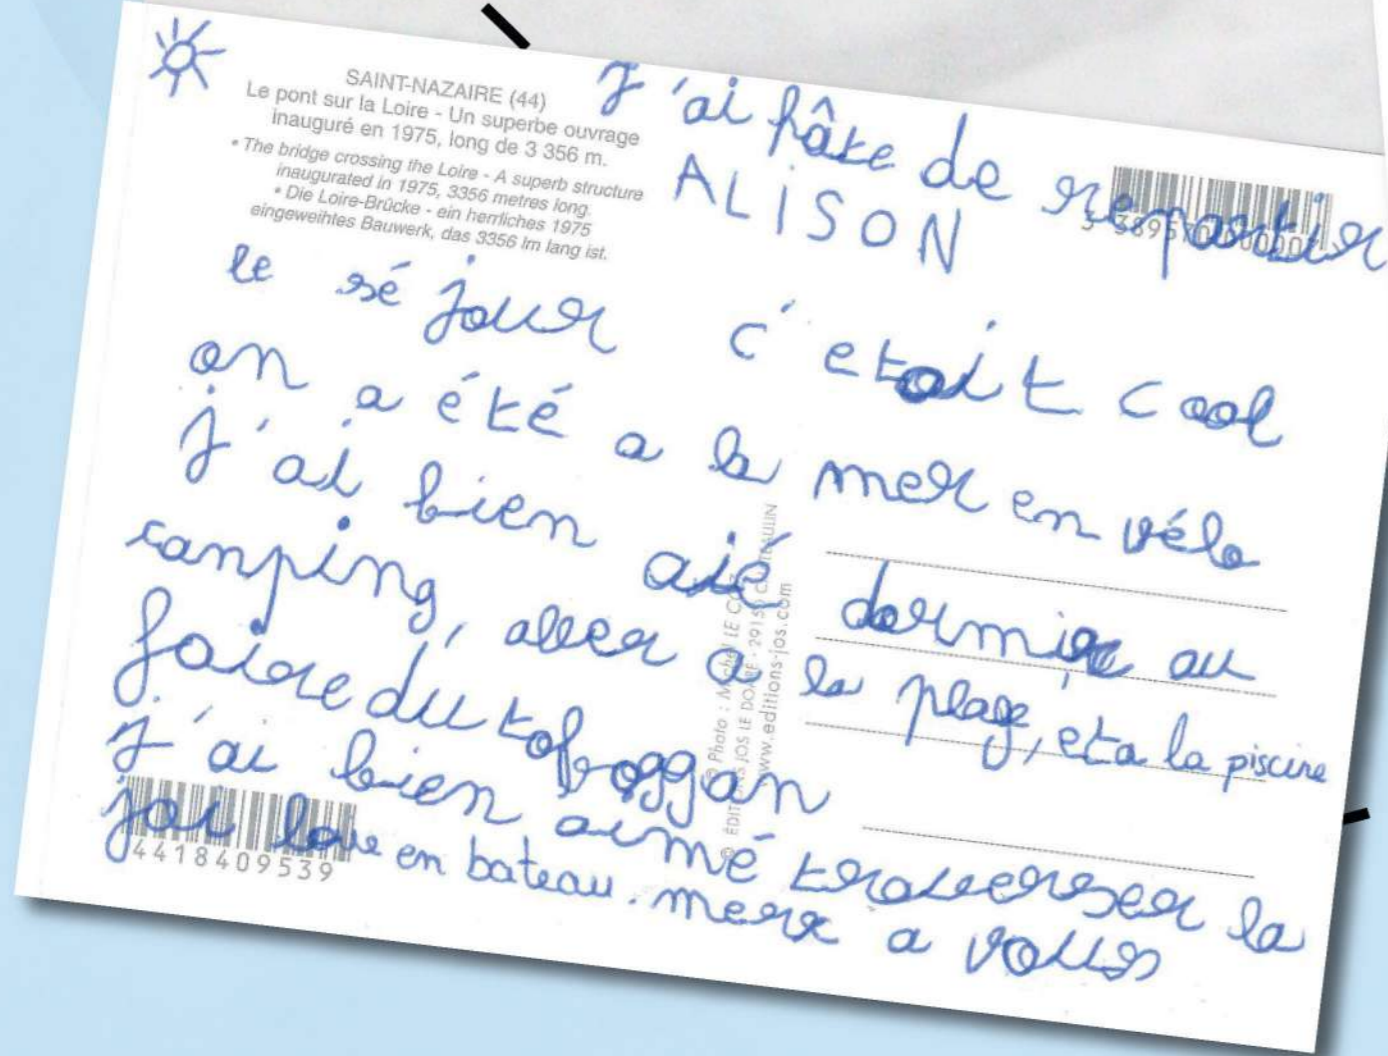 SAINT-NAZAIRE (44)
Le pont sur la Loire - Un superbe ouvrage
inauguré en 1975, long de 3 356 m.
• The bridge crossing the Loire - A superb structure
inaugurated in 1975, 3356 metres long.
• Die Loire-Brücke - ein herrliches 1975
eingeweihtes Bauwerk, das 3356 lm lang ist.
J'ai hâte de repartir
ALISON
le séjour c'etait cool
on a été a la mer en vélo
J'ai bien aié dormir au
camping, aller a la plage, et a la piscine
faire du toboggan
J'ai bien aimé traverser la
en bateau. merci a vous
© Photo : Michel LE
JOS LE DOARÉ - 29150
www.editions-jos.com
4418409539